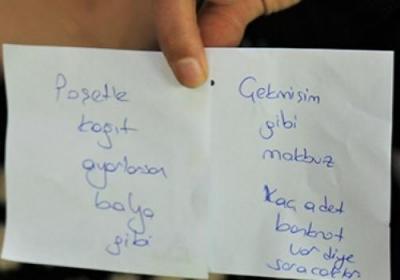 Poşetle
kağıt
ayarlarsın
balya
gibi
Çekmişim
gibi
makbuz
Kaç adet
banknot
var diye
soracaklar